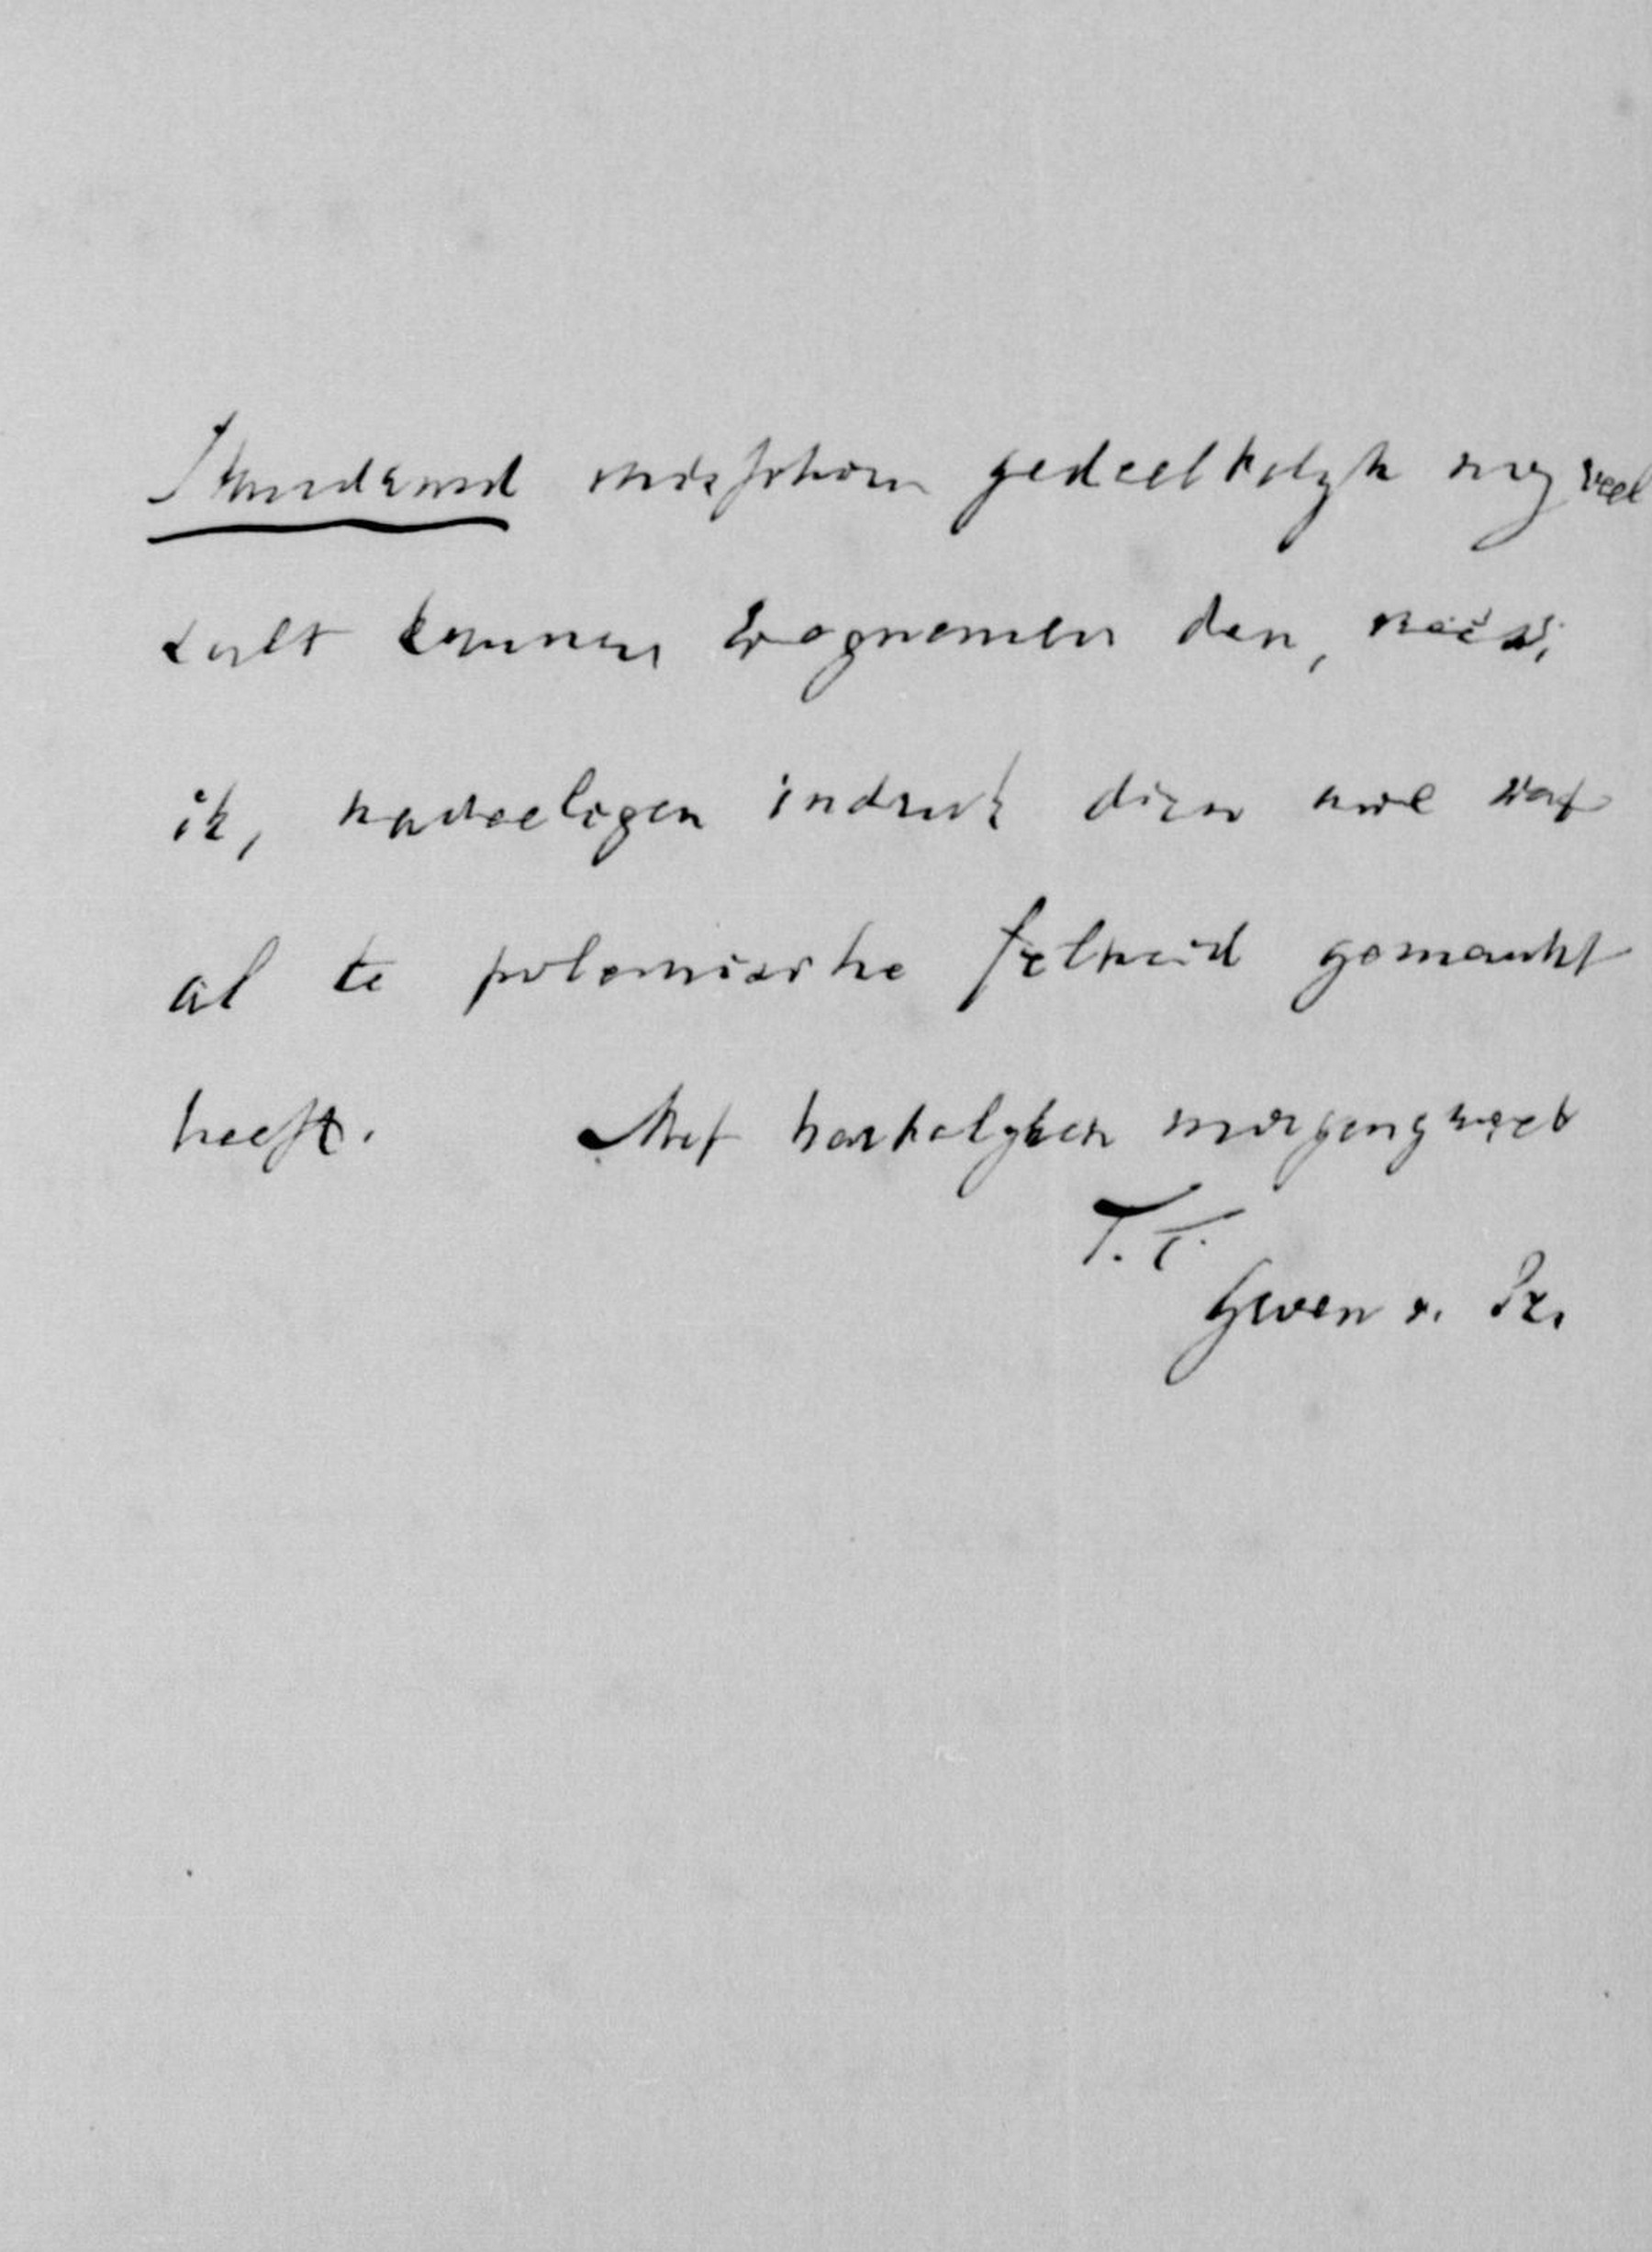 Standaard misschien gedeeltelyk nog veel
zult kunnen wegnemen den, vrees
ik, nadeeligen indruk dien uwe wat
al te polemische felheid gemaakt
heeft. Met hartelyken morgengroet
T.T.
Groen v. Pr.